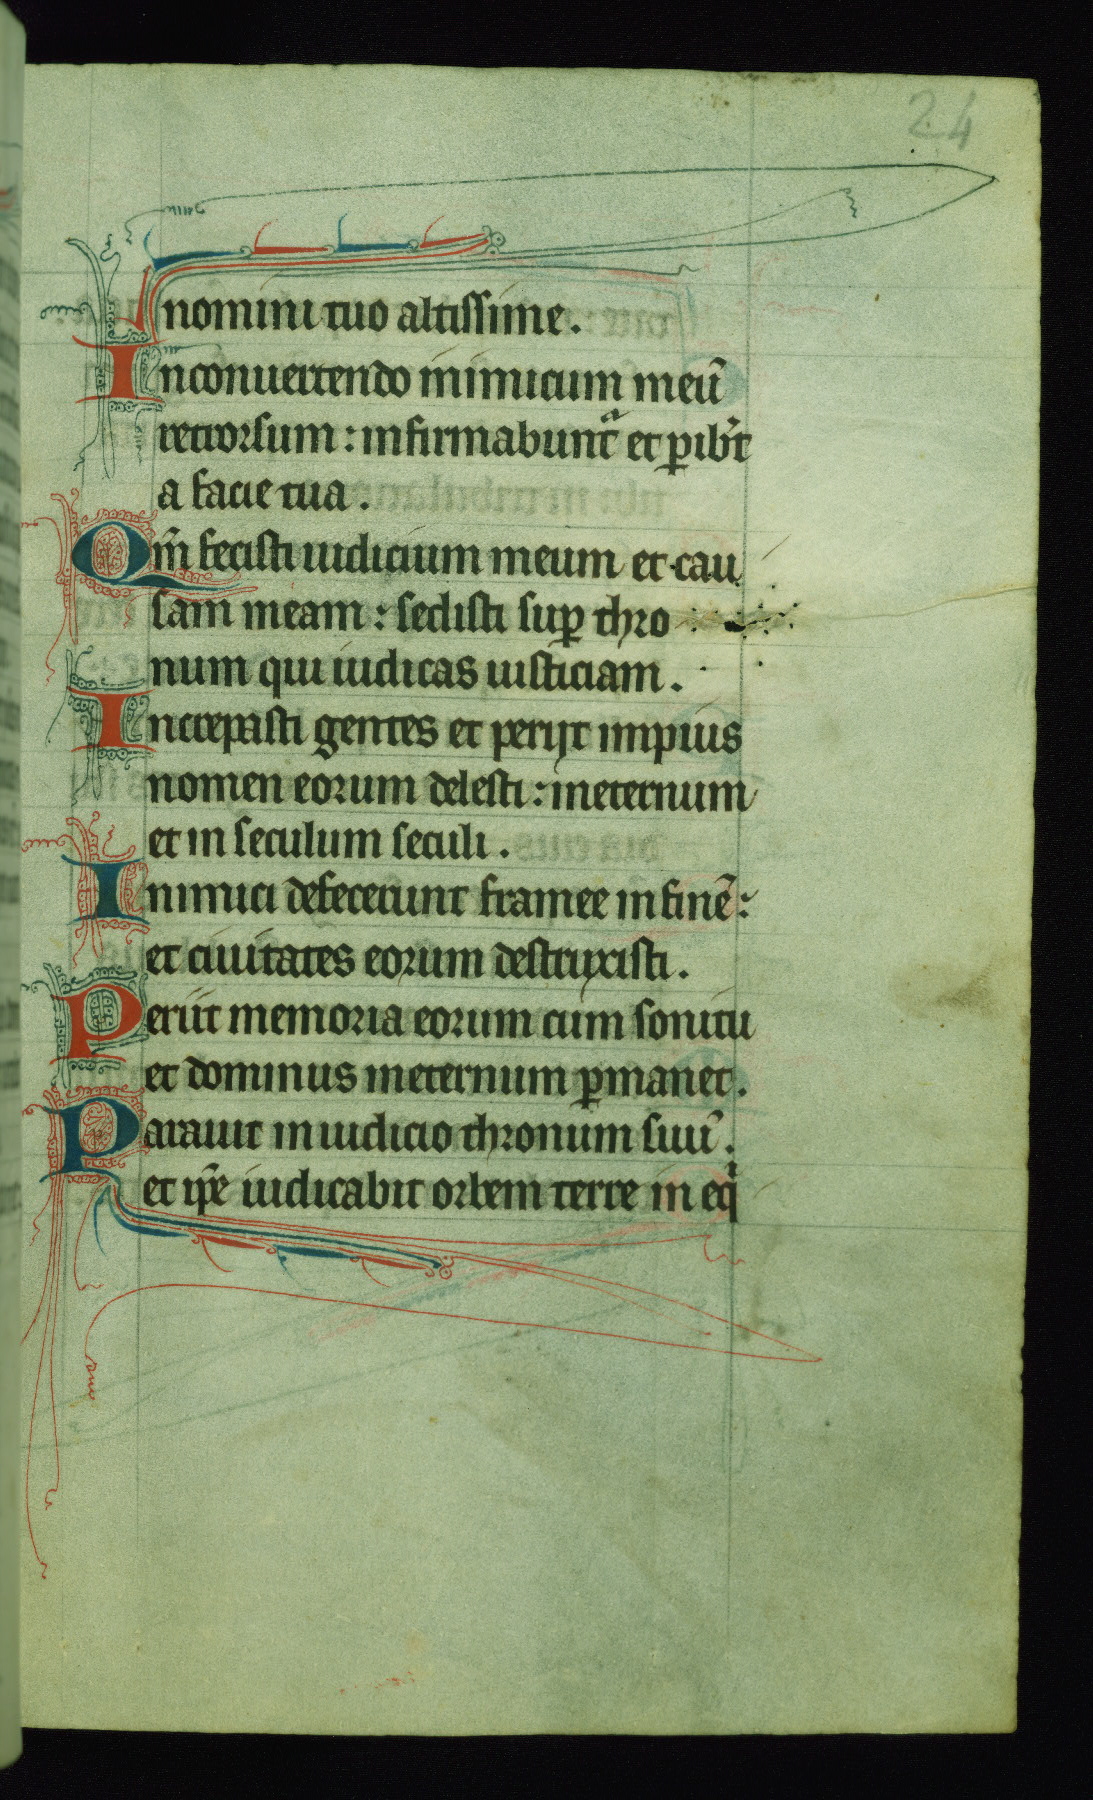 24
nomini tuo altissime.
Inconuertendo inimicum meū
retrorsum: infirmabuntᷓ et ꝑib̾t
a facie tua.
Qm̄ fecisti iudicium meum et cau
sam meam: sedisti suꝑ thro
num qui iudicas iusticiam.
Increpasti gentes et perijt impius
nomen eorum delesti: ineternum
et in seculum seculi.
Inimici defecerunt framee in finē:
et ciuitates eorum destruxisti.
Periit memoria eorum cum sonitu
et dominus ineternum ꝑmanet.
Parauit in iudicio thronum suū.
et ip̄e iudicabit orbem terre in eqͥ